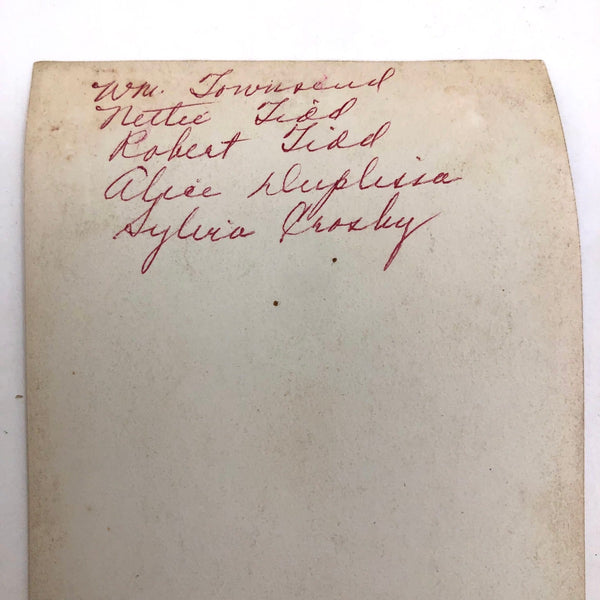 Wm. Townsend
Nettie Tidd
Robert Tidd
Alice Duplissa
Sylvia Crosby